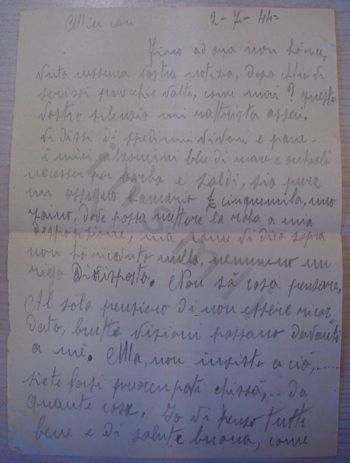 Miei cari 2-7-44=
Fino ad ora non ho rice,
vuto nessuna vostra notizia, dopo che vi
scrissi parecchie volte, come mai? questo
vostro silenzio mi rattrista assai.
Vi dissi di spedirmi viveri e pane-
i miei calzoncini bleu di mare e
necesser per barba e soldi, sia pure
un assegno bancario £ cinquemila, uno
zaino, dove possa mettere la roba a mia
disposizione, ma come vi dico sopra
non ho ricevuto nulla, nemmeno un
rigo di risposta. Non sò cosa pensare,
Al solo pensiero di non essere ricor,
dato, brutte visioni passano davanti
a me. Ma, non insisto a ciò,.....
siete forsi preoccupati chissà,.. da
quante cose. Io vi penso tutti
bene e di salute buona, come